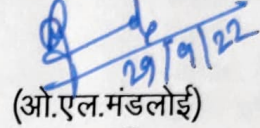 29/9/22
(ओ.एल.मंडलोई)